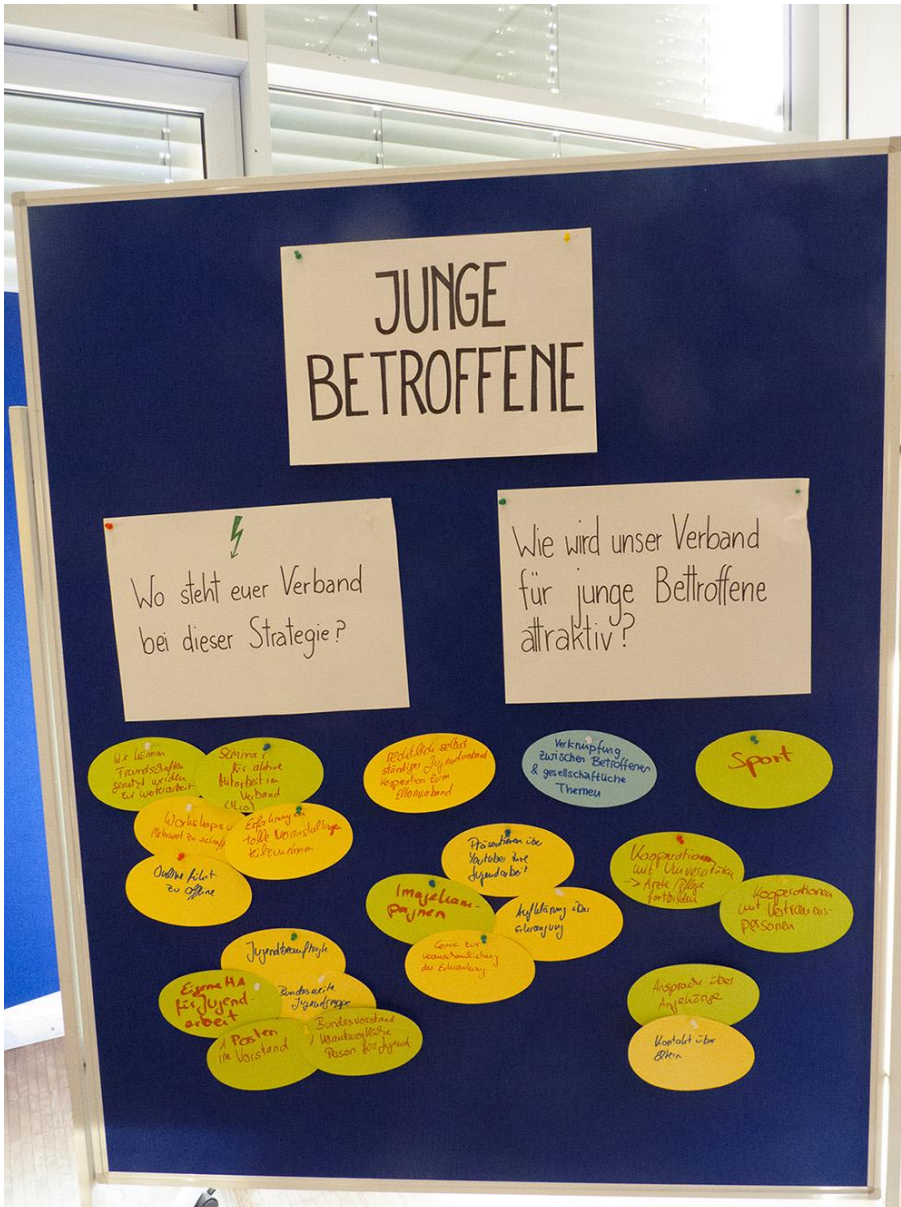 JUNGE
BETROFFENE
Wo steht euer Verband
bei dieser Strategie?
Wie wird unser Verband
für junge Bettroffene
attraktiv?
Wie können
Freundschaften
genutzt werden
zur Weiterarbeit
Seminar
für aktive
Mitarbeit im
Verband
Workshops
Erfahrungen
tolle Veranstaltungen
teilzunehmen
Online führt
zu Offline
rechtlich selbst
ständiger Jugendverband
Kooperation zum
Elternverband
Verknüpfung
zwischen Betroffenen
& gesellschaftliche
Themen
Sport
Präsentieren über
Youtuber ihre
Jugendarbeit
Imagekam-
pagnen
Aufklärung über
Erkrankung
Comic zur
Veranschaulichung
der Erkrankung
Kooperationen
mit Universitäten
-> Ärzte Pflege
fortbilden
Kooperationen
mit Vertrauens-
personen
Jugendbeauftragte
Bundesweite
Jugendgruppe
Eigene HA
für Jugend-
arbeit
1 Posten
im Vorstand
Bundesvorstand
1 Verantwortliche
Person für Jugend
Ansprache über
Angehörige
Kontakt über
Eltern